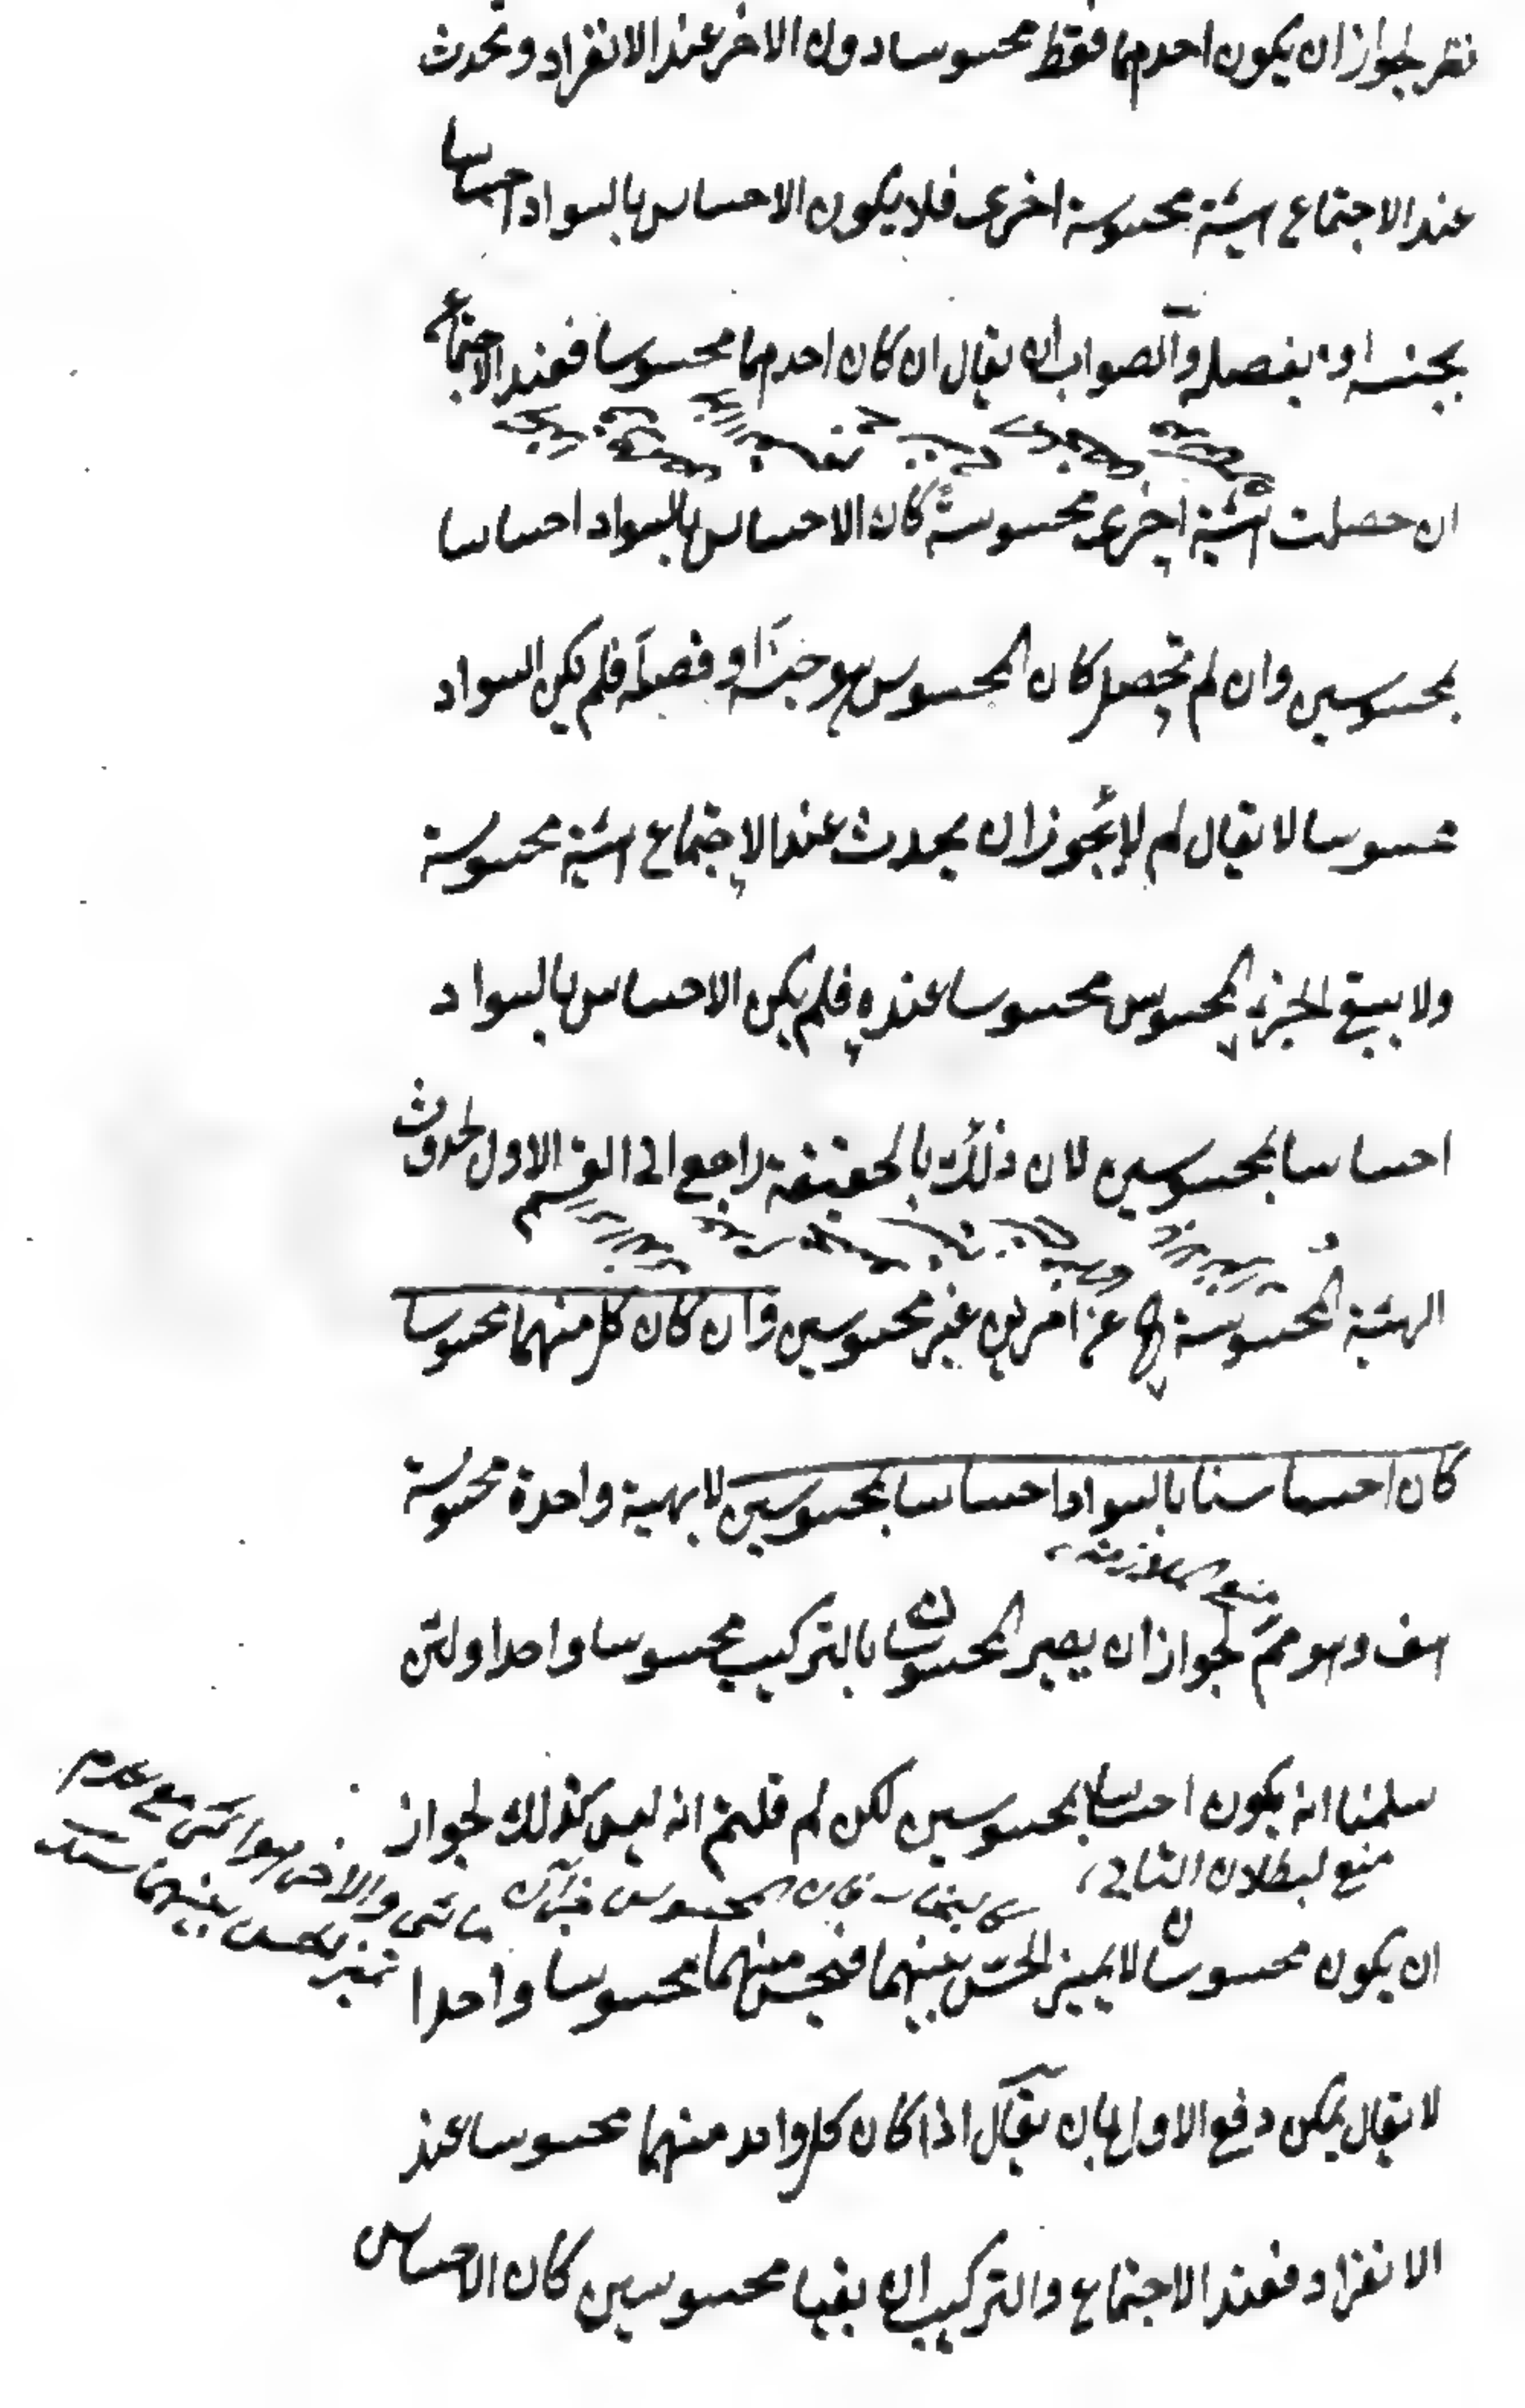 نظر لجواز ان يكون احدهما فقط محسوسا دون الاخر عند الانفراد وتحدث
عند الاجتماع هيئة محسوسة اخرى فلا يكون الاحساس بالسواد احساسا
بجنسه او بفصله والصواب ان يقال ان كان احدهما محسوسا فعند الاجتماع
ان حصلت هيئة اخرى محسوسة كان الاحساس بالسواد احساسا
بمحسوسين وان لم تحصل كان المحسوس هو جنسه او فصله فلم يكن السواد
محسوسا لا يقال لم لا يجوز ان يحدث عند الاجتماع هيئة محسوسة
ولا يبقى الجزء المحسوس محسوسا عنده فلم يكن الاحساس بالسواد
احساسا بمحسوسين لان ذلك بالحقيقة راجع الى القسم الاول لحدوث
الهيئة المحسوسة ح عن امرين غير محسوسين وان كان كل منهما محسوسا
كان احساسنا بالسواد احساسا بمحسوسين لا بهيئة واحدة محسوسة
منع الملازمة
هف وهو مم لجواز ان يصير المحسوسان بالتركيب محسوسا واحدا ولئن
سلمنا انه يكون احساسا بمحسوسين لكن لم قلتم انه ليس كذلك لجواز
منع لبطلان التالى
فان المحسوس جزآن مائى والاخر هوائى مع عدم
تميز الحس بينهما سند
ان يكون محسوسان لا يميز الحس بينهما فيحس منهما محسوسا واحدا
لا يقال يمكن دفع الاول بان يقال اذا كان كل واحد منهما محسوسا عند
الانفراد فعند الاجتماع والتركيب ان بقيا محسوسين كان الاحساس